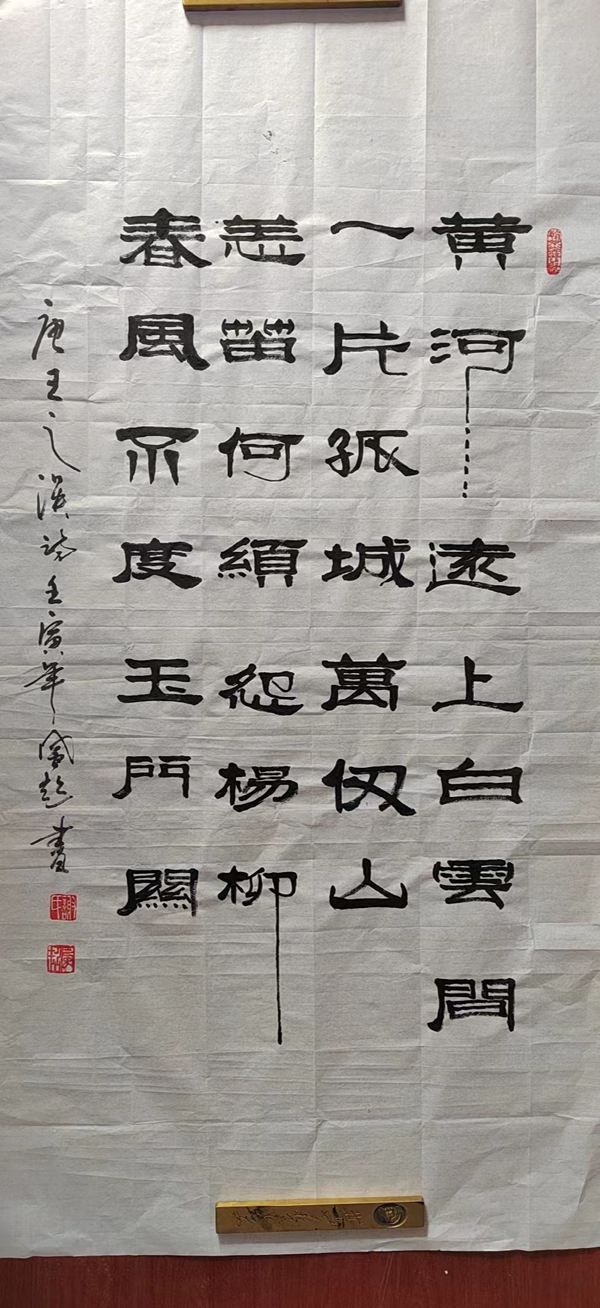 黄河遠上白雲間
一片孤城萬仞山
羌笛何須怨楊柳
春風不度玉門關
唐王之渙詩壬寅年書